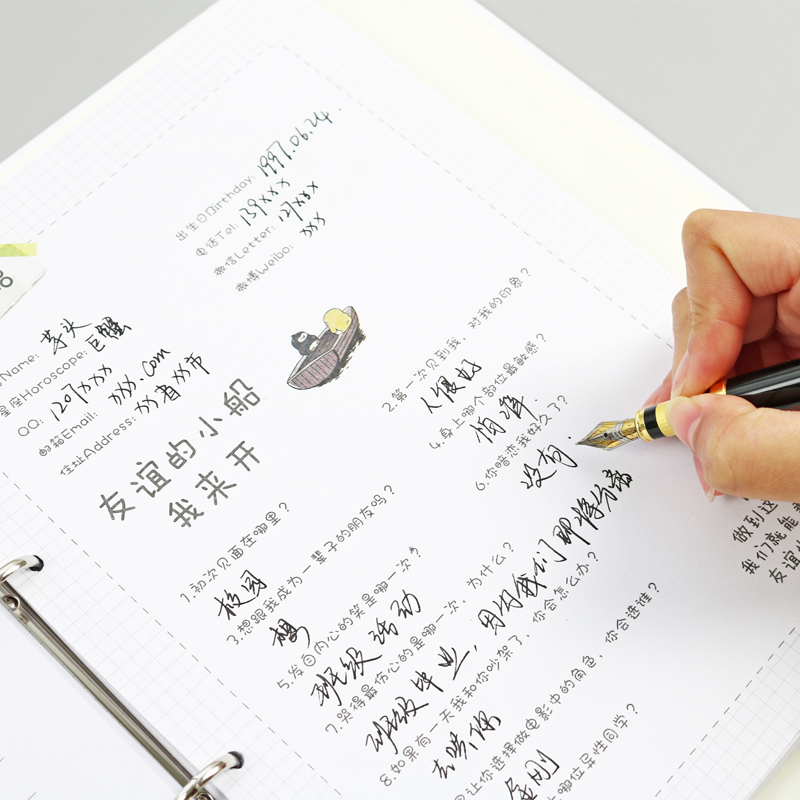 出生日Birthday: 1997.06.24.
电话Tel: 139xxx
微信Letter: 127xxx
微博Weibo: xxx
Name: 芋头
星座Horoscope: 巨蟹
QQ: 1207xxx
邮箱Email: xxx.com
住址Address: xx省xx市
友谊的小船
我来开
1.初次见面在哪里?
校园
2.第一次见到我,对我的印象?
人很好
3.想跟我成为一辈子的朋友吗?
想
4.身上哪个部位最敏感?
怕痒
5.发自内心的笑是哪一次?
班级活动
6.你暗恋我好久了?
没有.
7.哭得最伤心的是哪一次,为什么?
班级毕业,因为我们即将分离
8.如果有一天我和你吵架了,你会怎么办?
去哄你
让你选择做电影中的角色,你会选谁?
金刚
哪位异性同学?
做到这
我们就能
友谊